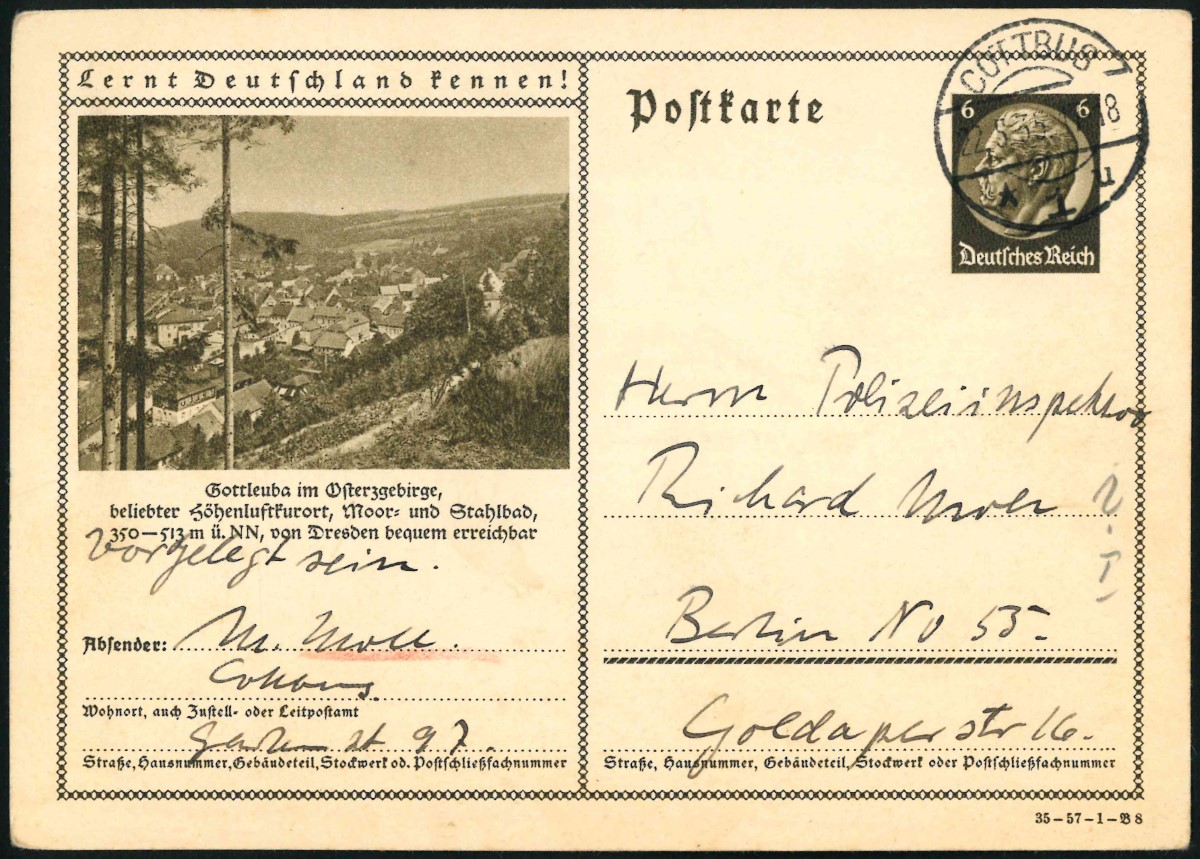 Lernt Deutschland kennen!
Gottleuba im Osterzgebirge,
beliebter Höhenluftkurort, Moor- und Stahlbad,
350–513 m ü. NN, von Dresden bequem erreichbar
vorgelegt sein.
Absender: M. Moll.
Wohnort, auch Zustell- oder Leitpostamt
Gartenstr 97.
Straße, Hausnummer, Gebäudeteil, Stockwerk od. Postschließfachnummer
Postkarte
COTTBUS 7
22.5.35 18
* 1 u
6 6
Deutsches Reich
Herrn Polizeiinspektor
Richard
Berlin No 55.
Goldaperstr 16.
Straße, Hausnummer, Gebäudeteil, Stockwerk oder Postschließfachnummer
35–57–1–B 8